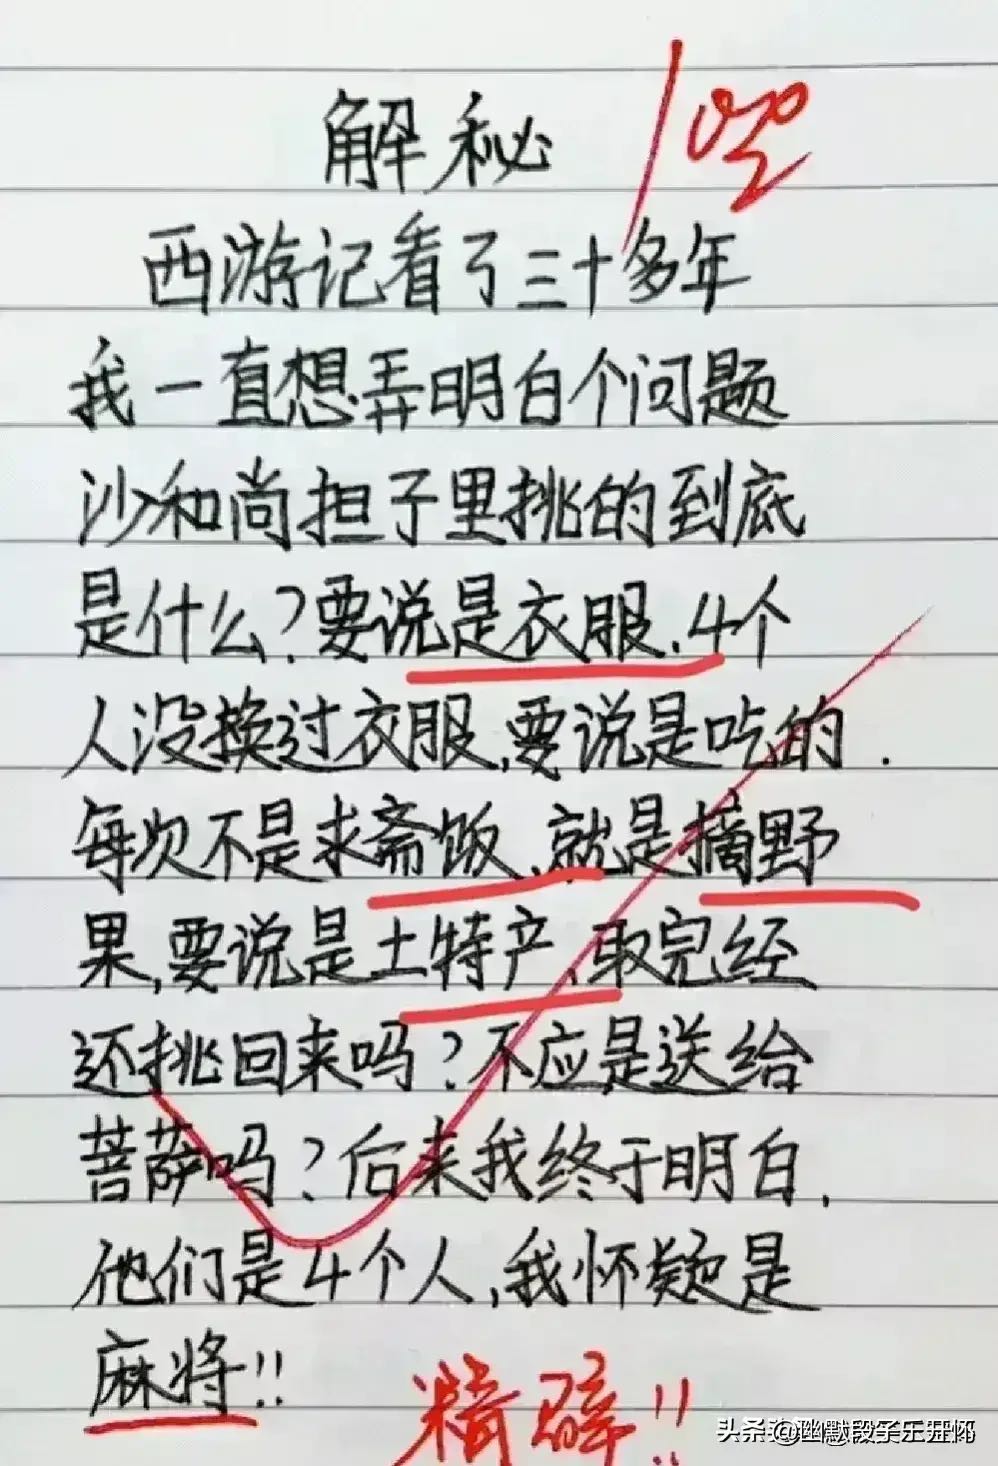 解秘
西游记看了三十多年
我一直想弄明白个问题
沙和尚担子里挑的到底
是什么?要说是衣服.4个
人没换过衣服,要说是吃的.
每次不是求斋饭、就是摘野
果,要说是土特产、取完经
还挑回来吗?不应是送给
菩萨吗?后来我终于明白,
他们是4个人,我怀疑是
麻将!!
精辟!!